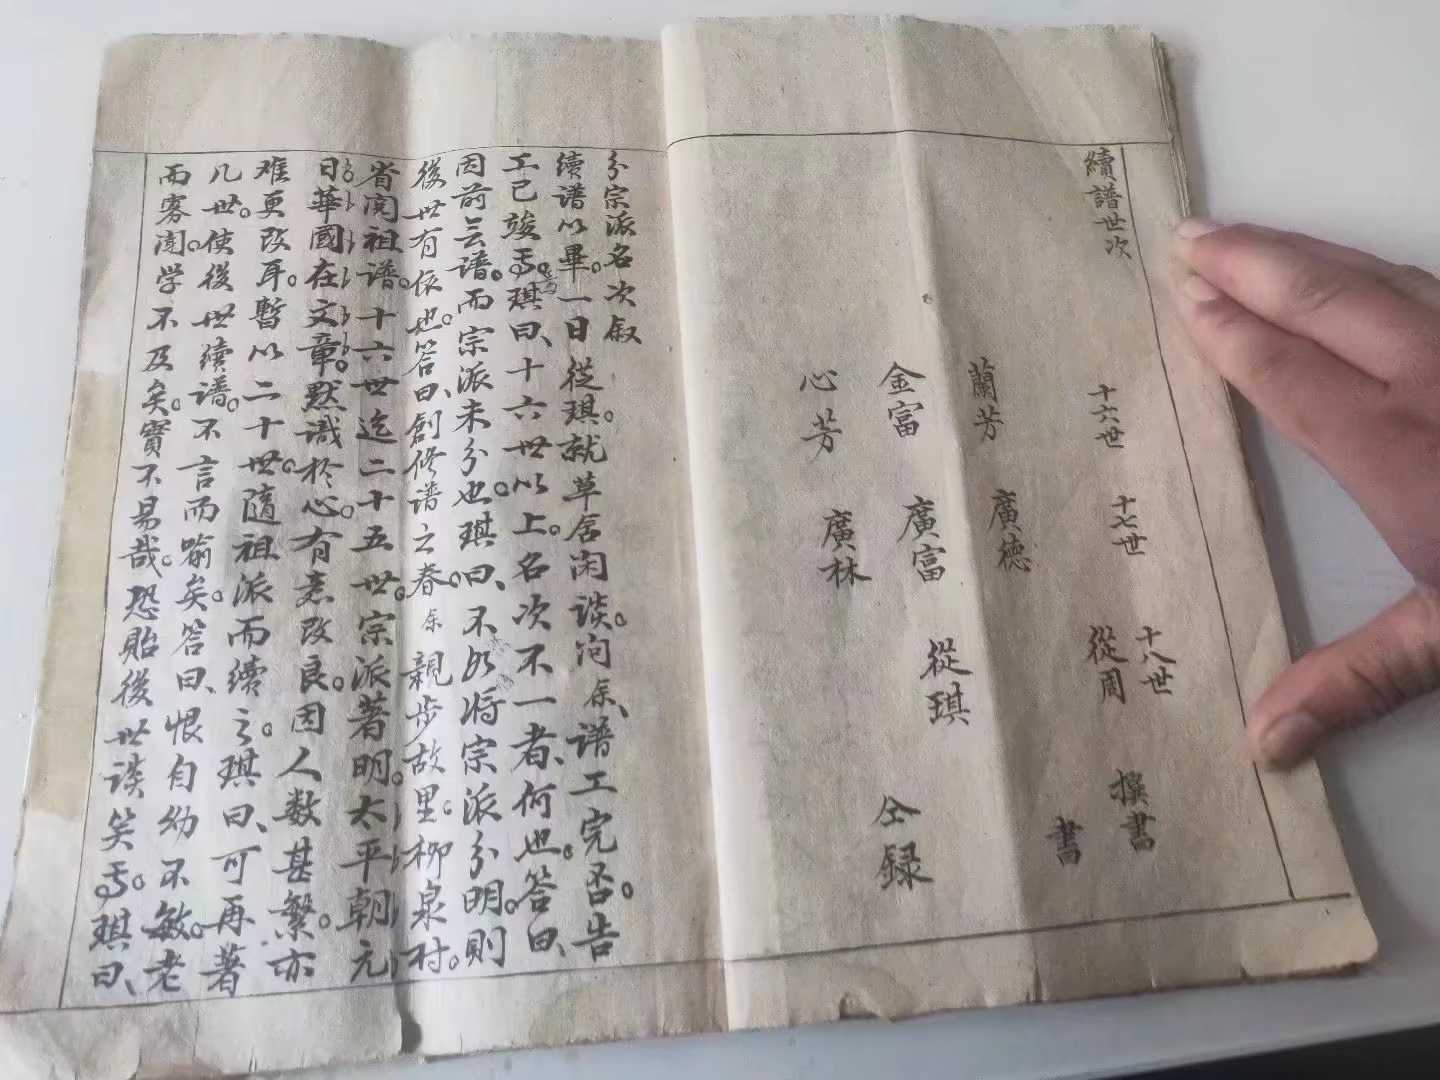 續譜世次
十六世 十七世 十八世
從周 撰書
書
蘭芳 廣德
金富 廣富 從琪 仝録
心芳 廣林
分宗派名次叙
續谱以畢。一日從琪。就草舍闲谈。问余、谱工完否。告
工已竣焉。琪曰、十六世以上。名次不一者、何也。答曰、
因前云谱。而宗派未分也。琪曰、不如将宗派分明。则
後世有依也。答曰、創修谱之春。余親步故里。柳泉村。
省闵祖谱。十六世迄二十五世。宗派著明。太平朝元
日。華國在文章。默识於心。有意改良。因人数甚繁。亦
难更改耳。暫以二十世。隨祖派而續之。琪曰、可再著
几世。使後世續谱。不言而喻矣。答曰、恨自幼不敏。老
而寡闻。学不及矣。實不易哉。恐贻後世谈笑焉。琪曰、